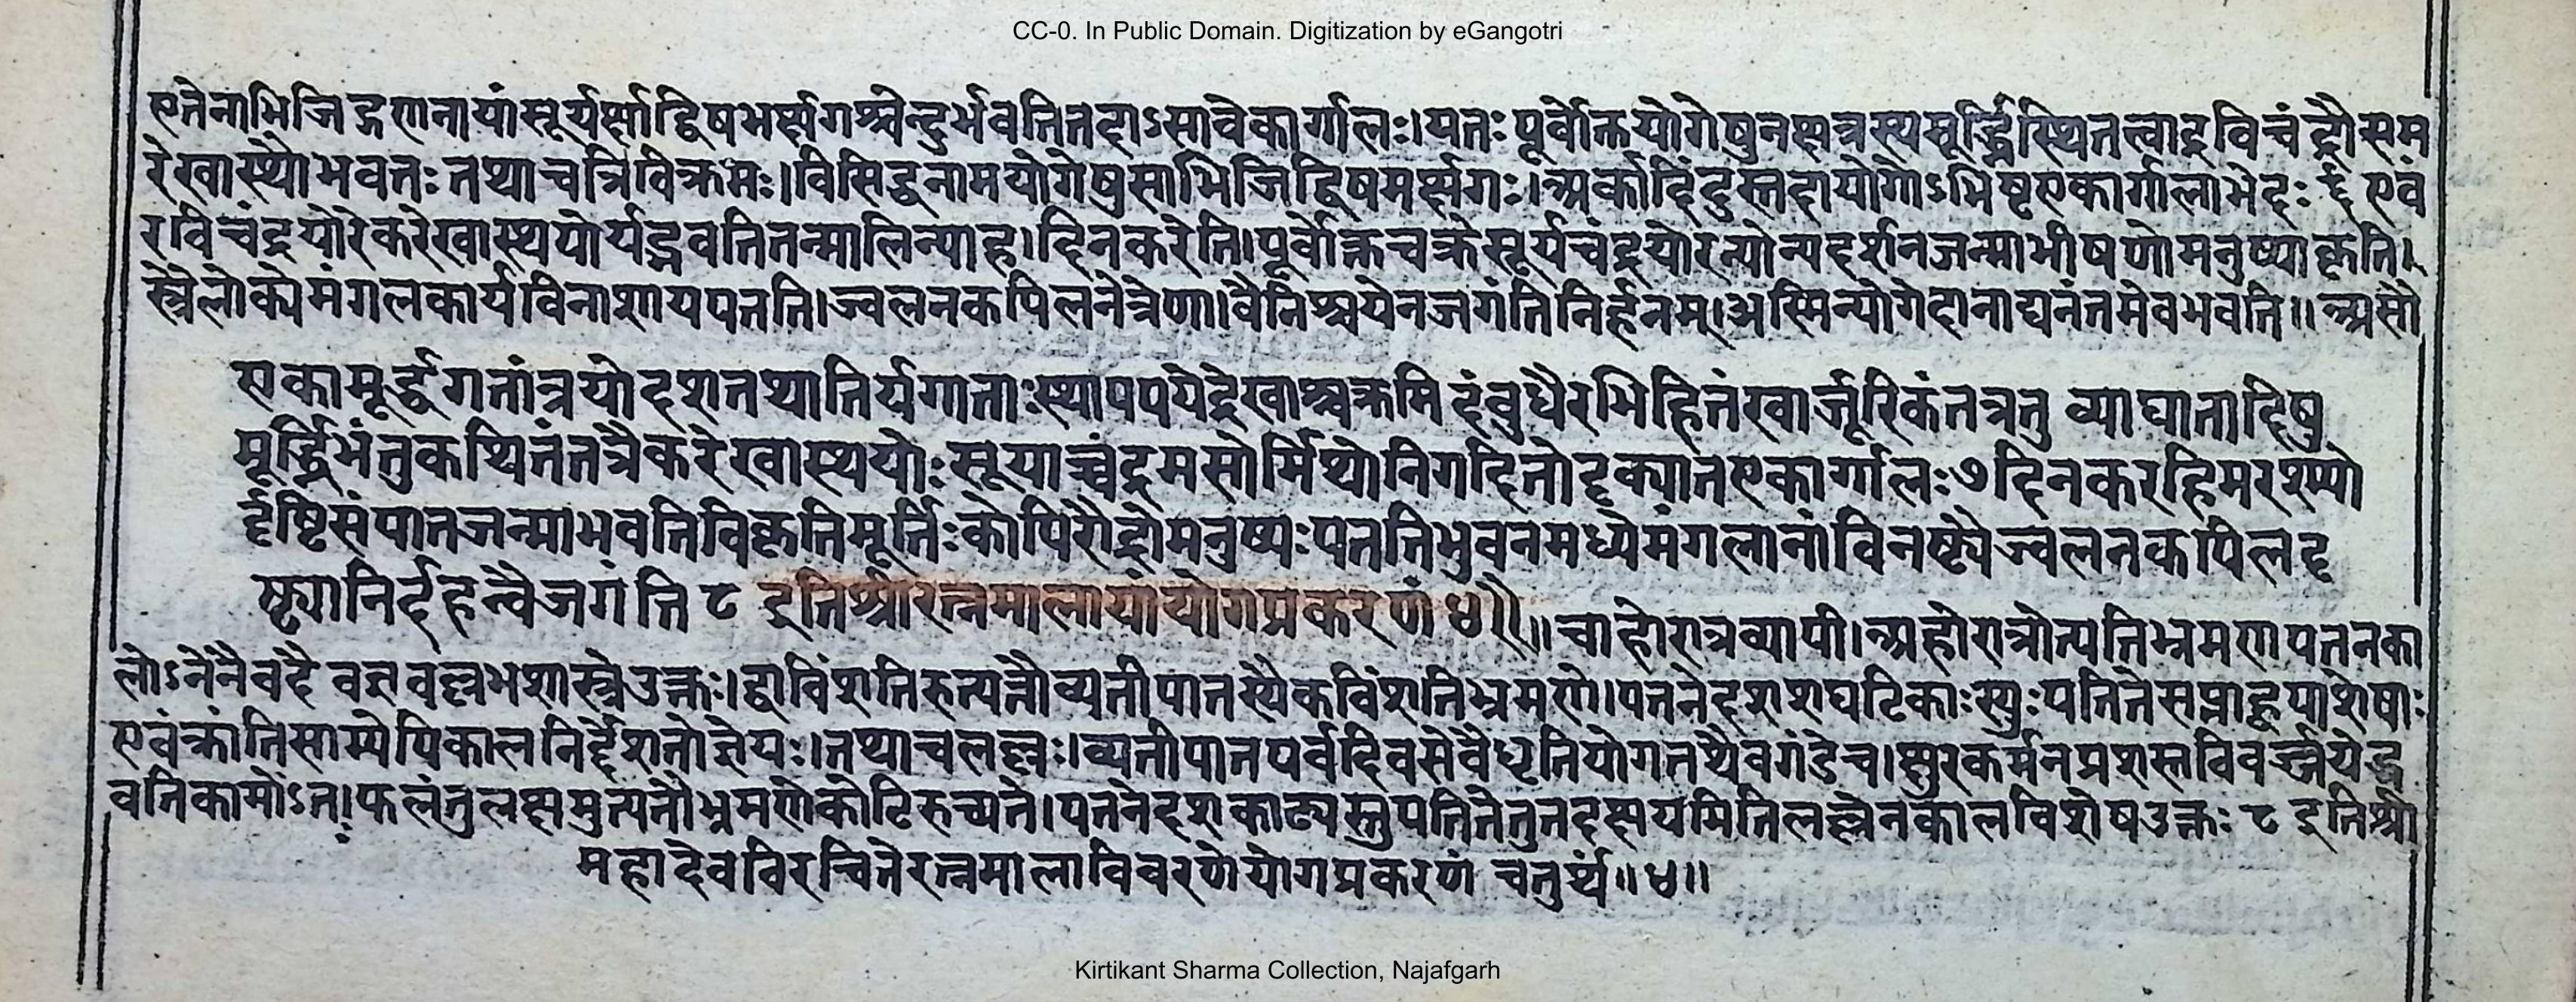 CC-0. In Public Domain. Digitization by eGangotri
एतेनाभिजिद्गणनायांसूर्यर्क्षाद्विषभर्क्षगश्चेन्दुर्भवतितदाऽसावेकार्गलः।यतः पूर्वोक्तयोगेषुनक्षत्रस्यमूर्द्ध्निस्थितत्वाद्रविचंद्रौसम
रेखास्थौभवतः तथाचत्रिविक्रमः।विसिद्धनामयोगेषुसाभिजिद्विषमर्क्षगः।अर्कादिंदुस्तदायोगोऽभिष्टएकार्गलाभेदः ६ एवं
रविचंद्रयोरेकरेखास्थयोर्यद्भवतितन्मालिन्याह।दिनकरेति।पूर्वोक्तचक्रेसूर्यचंद्रयोरन्योन्यदर्शनजन्माभीषणोमनुष्याकृति।
स्त्रैलोक्येमंगलकार्यविनाशायपतति।ज्वलनकपिलनेत्रेणा।वैनिश्चयेनजगंतिनिर्द्दहनम्।अस्मिन्योगेदानाद्यनंतमेवभवति॥ असौ
एकामूर्द्धगतांत्रयोदशतथातिर्यगाताःस्थापपयेद्रेखाश्चक्रमिदंबुधैरभिहितंखार्जूरिकंतत्रतु व्याघातादिषु
मूर्द्ध्निभंतुकथितंतत्रैकरेखास्थयोःसूयाच्चंद्रमसोर्मिथोनिगदितोदृक्यातएकार्गलः७दिनकरहिमरश्म्यो
र्दृष्टिसंपातजन्माभवतिविकृतिमूर्तिःकोपिरौद्रोमनुष्यःपततिभुवनमध्येमंगलानांविनष्ट्यैज्वलनकपिलदृ
ष्ट्यानिर्दहन्वैजगंति ८ इतिश्रीरत्नमालायांयोगप्रकरणं ४॥ ॥चाहोरात्रव्यापी।अहोरात्रोत्पतिभ्रमणपतनका
लोऽनेनैवदैवज्ञवल्लभशास्त्रेउक्तः।द्वाविंशतिरुत्पत्तौव्यतीपातस्यैकविंशतिभ्रमणे।पतनेदशशघटिकाःस्युःपतितेसप्ताह्रपाशेषाः
एवंक्रांतिसाम्येपिकालनिर्द्देशतोज्ञेयः।तथाचलल्लः।व्यतीपातपर्वदिवसेवैधृतियोगतथैवगंडेच।क्षुरकर्मनप्रशस्तविवर्ज्जयेद्भ
वतिकामोऽत।फलंतुलक्षमुत्पतौभ्रमणेकोटिरुच्यते।पतनेदशकाट्यस्तुपतितेतुतदक्षयमितिलल्लेनकालविशेषउक्तः ८ इतिश्री
महादेवविरचितेरत्नमालाविवरणेयोगप्रकरणं चतुर्थं॥४॥
Kirtikant Sharma Collection, Najafgarh